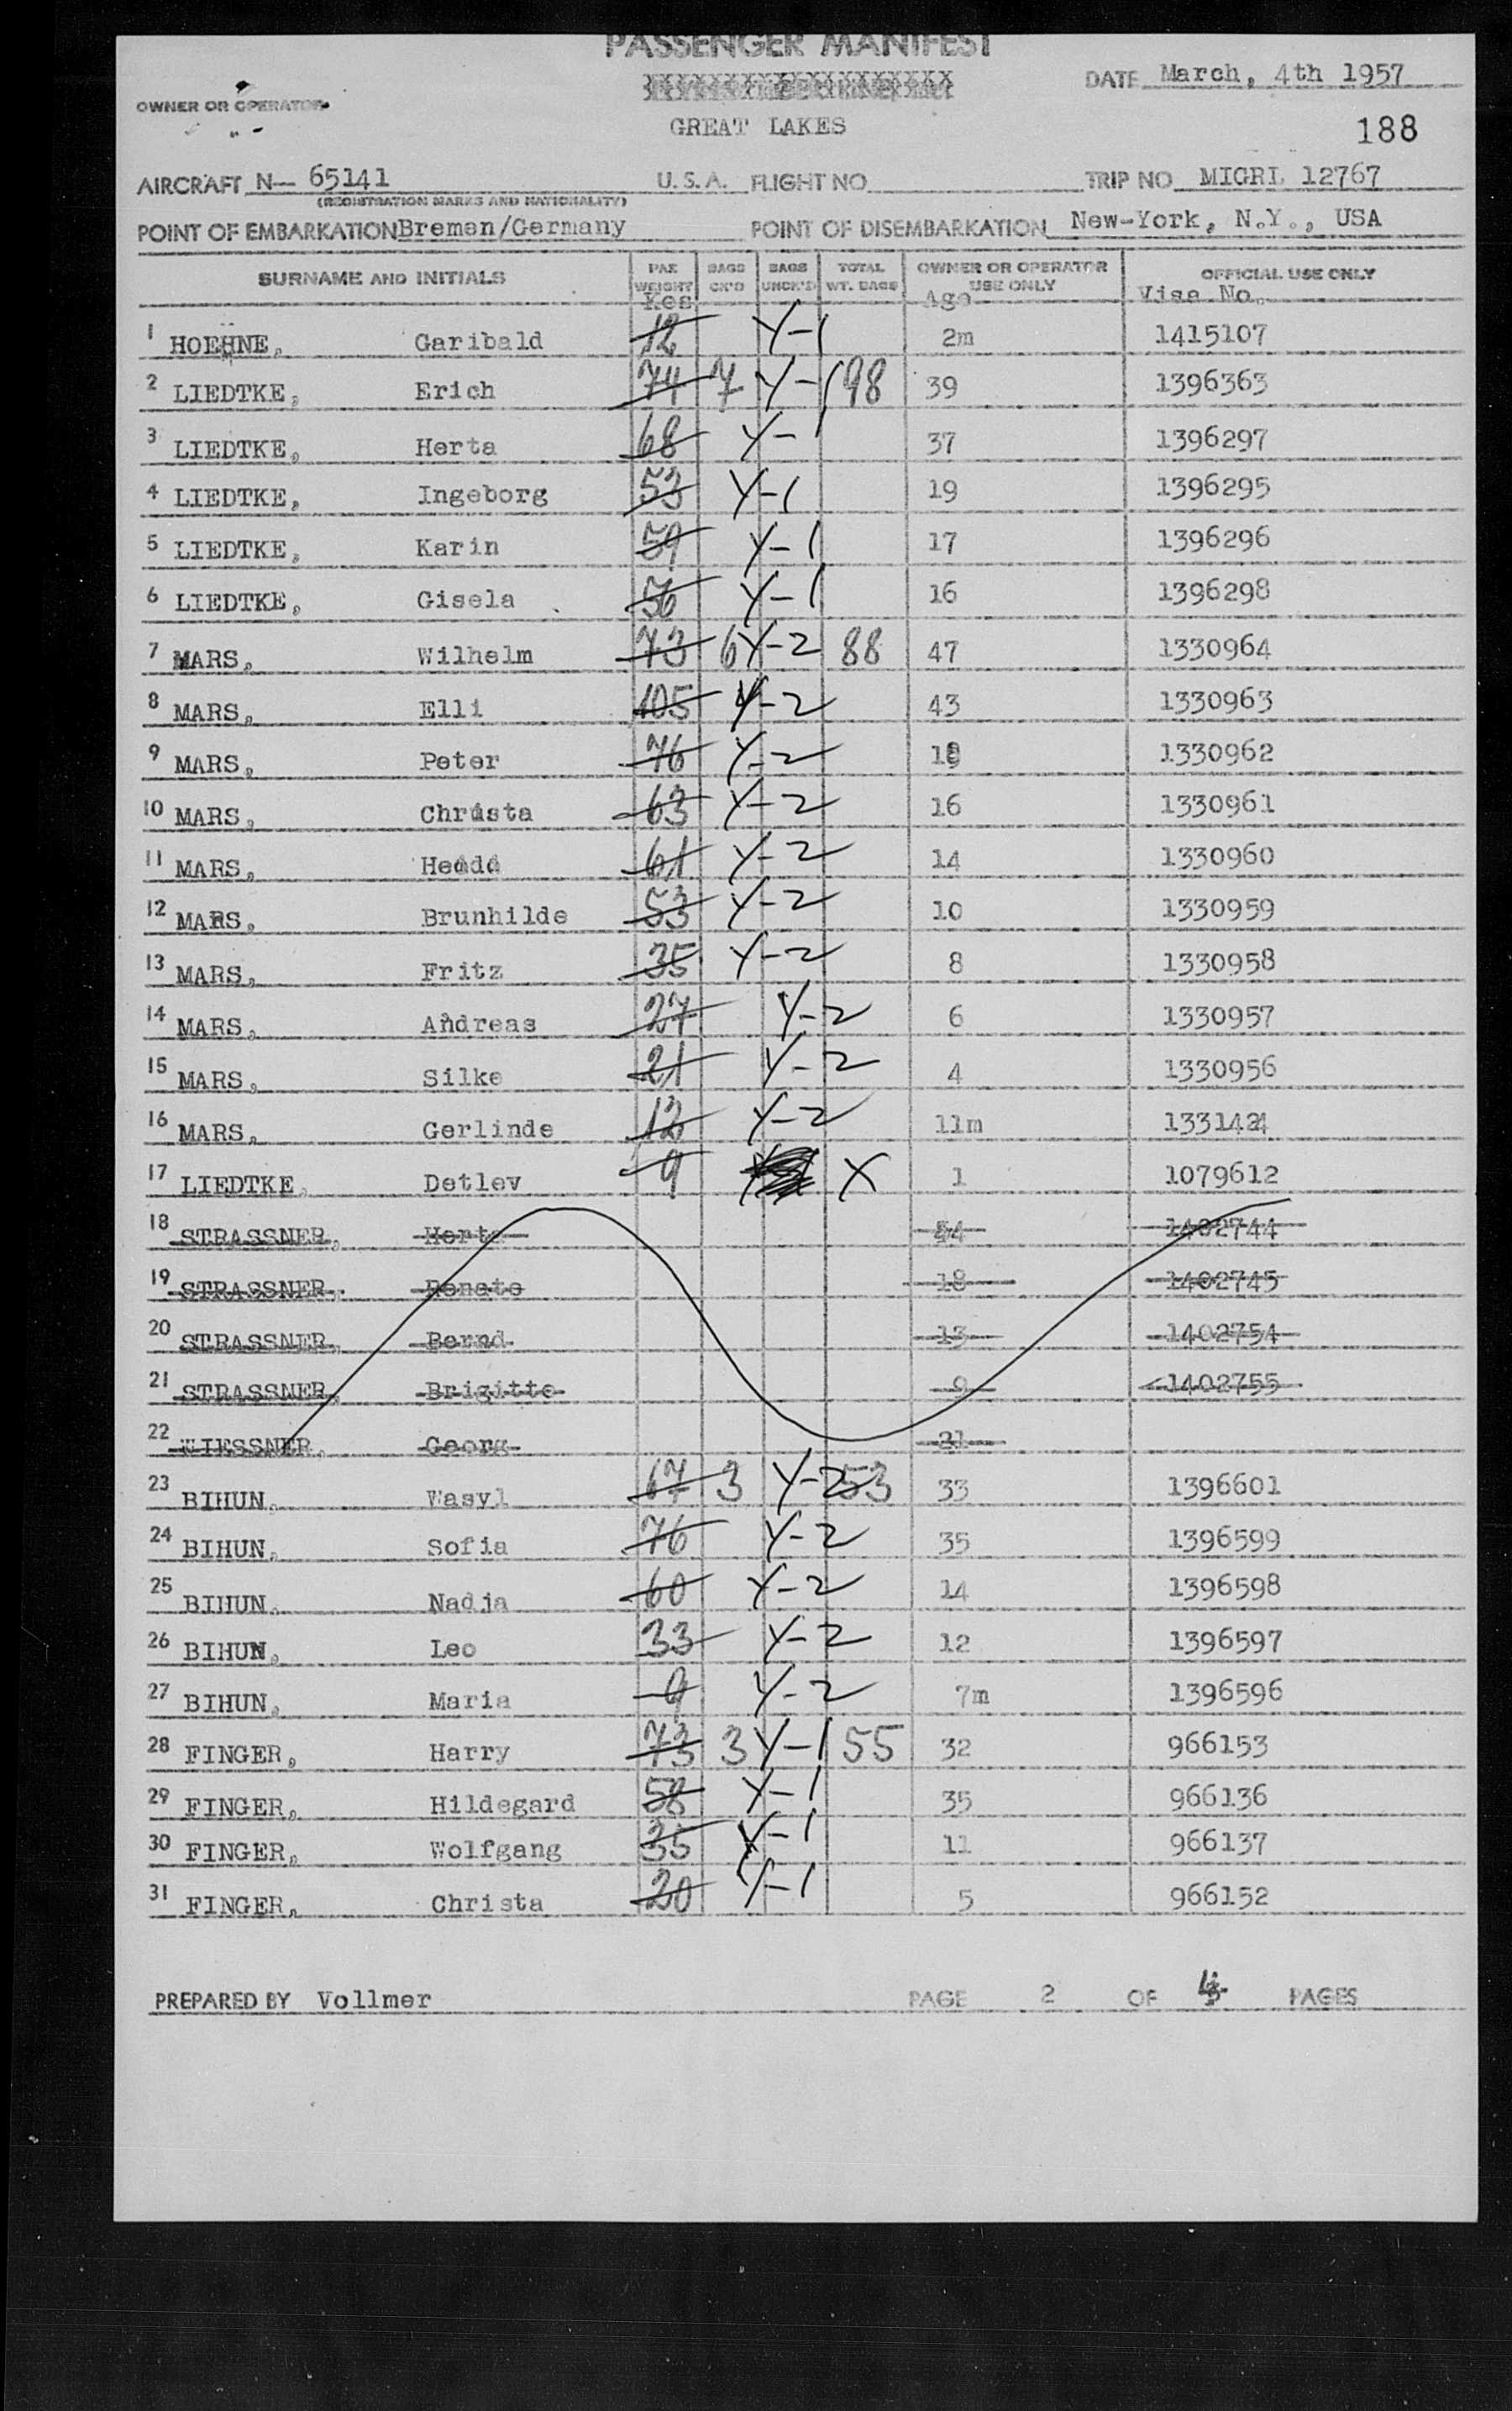 PASSENGER MANIFEST
DATE March, 4th 1957
OWNER OR OPERATOR
GREAT LAKES
188
AIRCRAFT N— 65141 U.S.A. FLIGHT NO TRIP NO MIGRI 12767
(REGISTRATION MARKS AND NATIONALITY)
POINT OF EMBARKATION Bremen/Germany POINT OF DISEMBARKATION New-York, N.Y., USA
SURNAME AND INITIALS PAX WEIGHT Kgs BAGS CK'D BAGS UNCK'D TOTAL WT. BAGS OWNER OR OPERATOR USE ONLY Age OFFICIAL USE ONLY Visa No.
1 HOEHNE, Garibald 12 Y-1 2m 1415107
2 LIEDTKE, Erich 74 7 Y-1 98 39 1396363
3 LIEDTKE, Herta 68 Y-1 37 1396297
4 LIEDTKE, Ingeborg 53 Y-1 19 1396295
5 LIEDTKE, Karin 59 Y-1 17 1396296
6 LIEDTKE, Gisela 56 Y-1 16 1396298
7 MARS, Wilhelm 73 6 Y-2 88 47 1330964
8 MARS, Elli 105 Y-2 43 1330963
9 MARS, Peter 76 Y-2 1330962
10 MARS, Christa 63 Y-2 16 1330961
11 MARS, 61 Y-2 14 1330960
12 MARS, Brunhilde 53 Y-2 10 1330959
13 MARS, Fritz 35 Y-2 8 1330958
14 MARS, Andreas 27 Y-2 6 1330957
15 MARS, Silke 21 Y-2 4 1330956
16 MARS, Gerlinde 12 Y-2 11m
17 LIEDTKE, Detlev 9 X 1 1079612
18 STRASSNER, Herta 1402744
19 STRASSNER, Renate 18 1402745
20 STRASSNER, Bernd 13 1402754
21 STRASSNER, Brigitte 9 1402755
22 WIESSNER, Georg 21
23 BIHUN, Wasyl 67 3 Y-2 53 33 1396601
24 BIHUN, Sofia 76 Y-2 35 1396599
25 BIHUN, Nadja 60 Y-2 14 1396598
26 BIHUN, Leo 33 Y-2 12 1396597
27 BIHUN, Maria 9 Y-2 7m 1396596
28 FINGER, Harry 73 3 Y-1 55 32 966153
29 FINGER, Hildegard 58 Y-1 35 966136
30 FINGER, Wolfgang 35 Y-1 11 966137
31 FINGER, Christa 20 Y-1 5 966152
PREPARED BY Vollmer PAGE 2 OF 4 PAGES